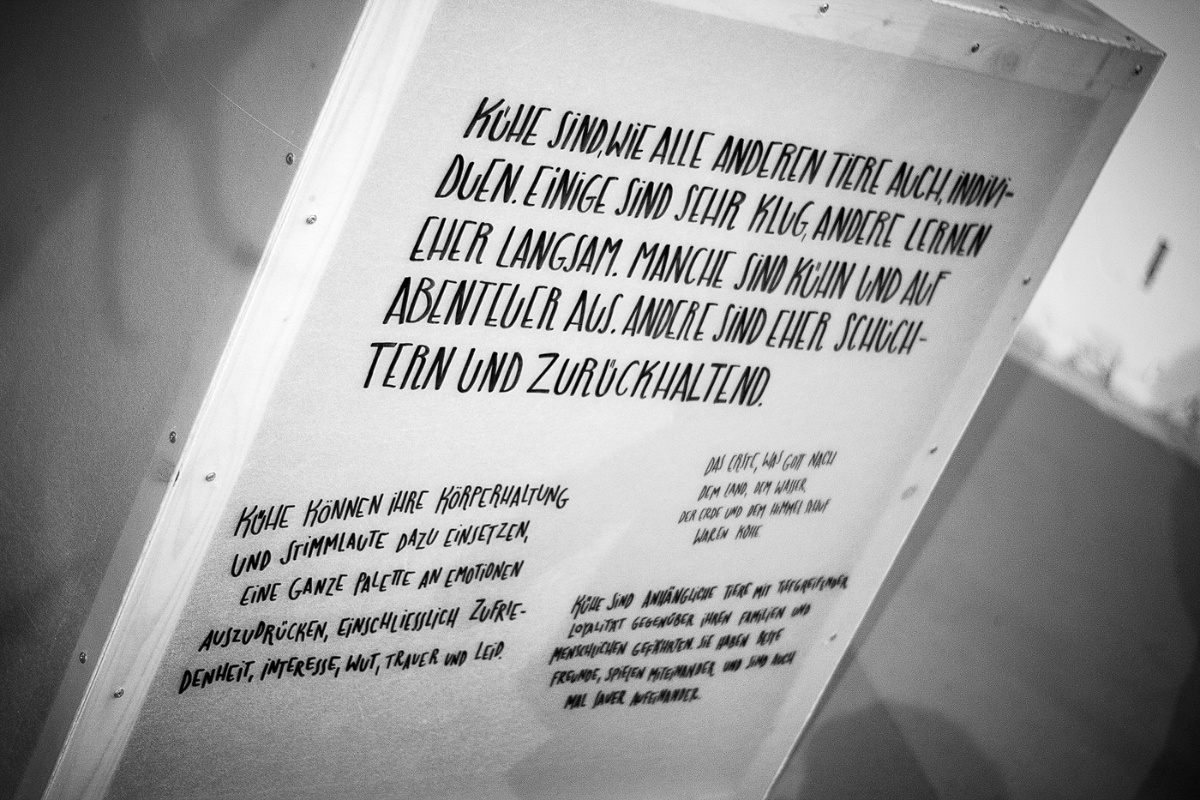 KÜHE SIND, WIE ALLE ANDEREN TIERE AUCH, INDIVI-
DUEN. EINIGE SIND SEHR KLUG, ANDERE LERNEN
EHER LANGSAM. MANCHE SIND KÜHN UND AUF
ABENTEUER AUS. ANDERE SIND EHER SCHÜCH-
TERN UND ZURÜCKHALTEND.
KÜHE KÖNNEN IHRE KÖRPERHALTUNG
UND STIMMLAUTE DAZU EINSETZEN,
EINE GANZE PALETTE AN EMOTIONEN
AUSZUDRÜCKEN, EINSCHLIESSLICH ZUFRIE-
DENHEIT, INTERESSE, WUT, TRAUER UND LEID.
DAS ERSTE, WAS GOTT NACH
DEM LAND, DEM WASSER,
DER ERDE UND DEM HIMMEL SCHUF
WAREN KÜHE
KÜHE SIND ANHÄNGLICHE TIERE MIT TIEFGREIFENDER
LOYALITÄT GEGENÜBER IHREN FAMILIEN UND
MENSCHLICHEN GEFÄHRTEN. SIE HABEN BESTE
FREUNDE, SPIELEN MITEINANDER UND SIND AUCH
MAL SAUER AUFEINANDER.